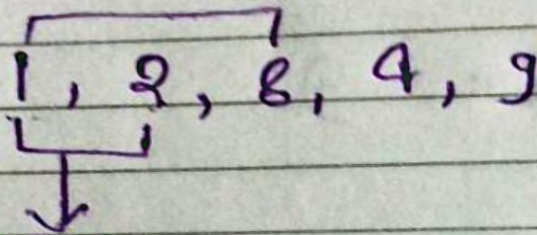 1, 2, 8, 4, 9